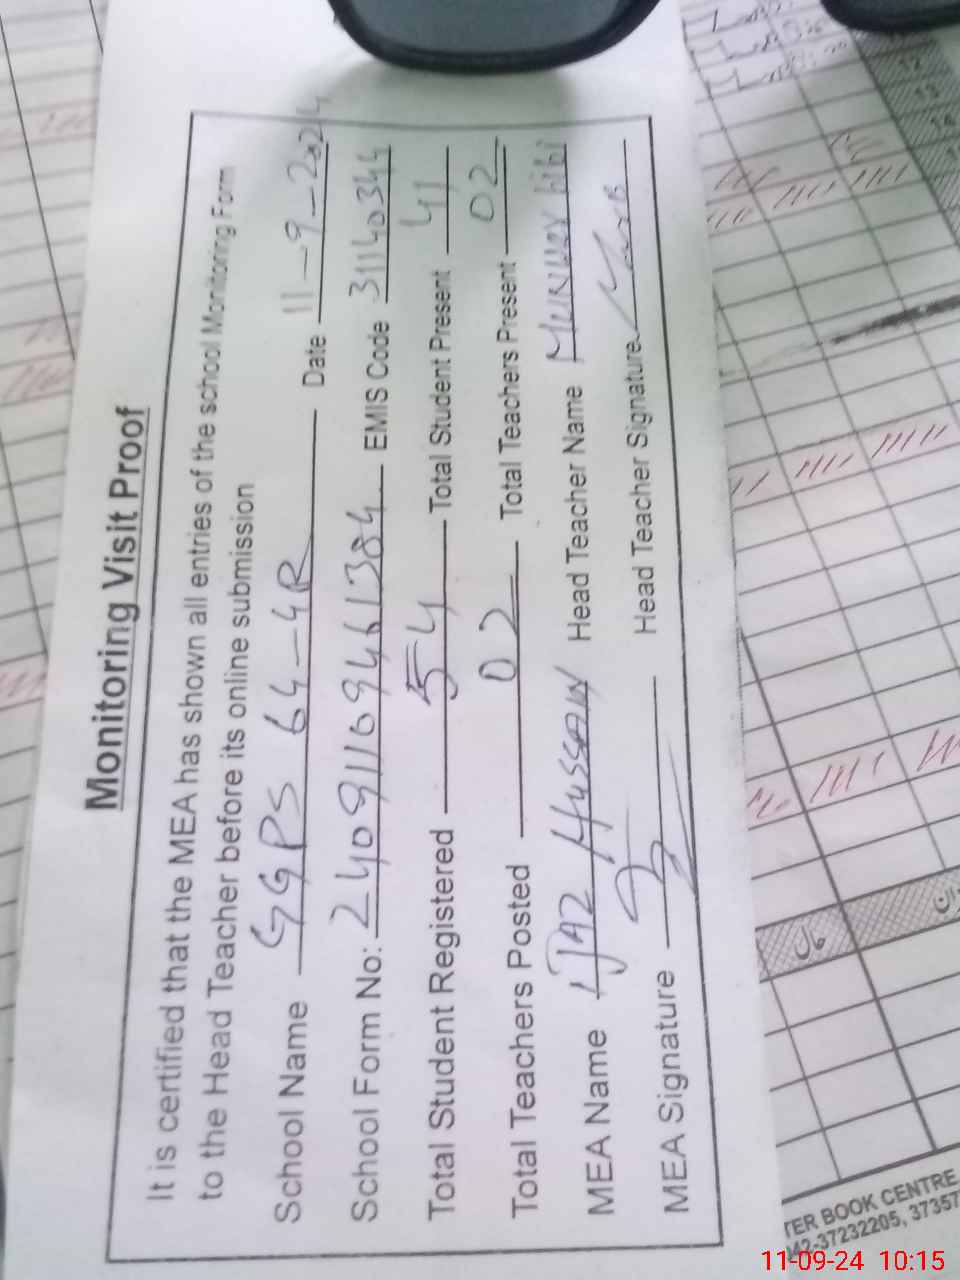 Monitoring Visit Proof
It is certified that the MEA has shown all entries of the school Monitoring Form
to the Head Teacher before its online submission
School Name GGPS 64-4R Date 11-9-2024
School Form No: 24091169461384 EMIS Code 31140344
Total Student Registered 54 Total Student Present 41
Total Teachers Posted 02 Total Teachers Present 02
MEA Name IJAZ HUSSAIN Head Teacher Name Munwar bibi
MEA Signature Head Teacher Signature
12
13
14
TER BOOK CENTRE
042-37232205, 3735
11-09-24 10:15